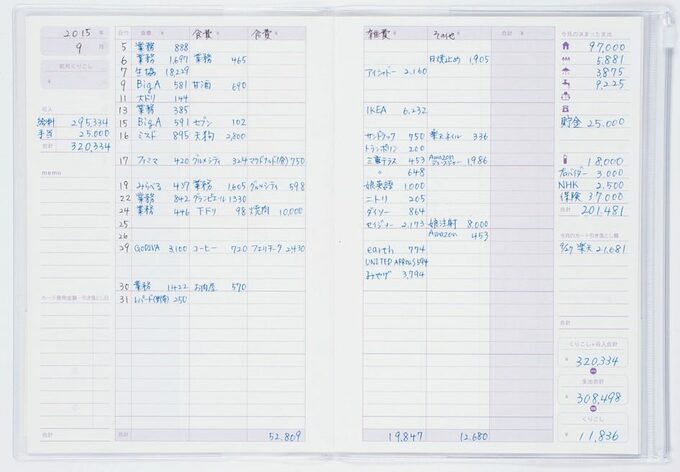 2015 年
9 月
前月くりこし
¥
収入
給料 295,334
手当 25,000
合計 320,334
memo
カード使用金額・引き落とし日
合計
日付 食費 食費 食費
5 業務 888
6 業務 1,697 業務 465
7 生協 18229
9 BigA 581 甘酒 690
11 大ドリ 144
13 業務 385
15 BigA 591 セブン 102
16 ミスド 895 天狗 2,800
17 ファミマ 420 グルメシティ 324 マクドナルド(外) 750
19 みらべる 437 業務 1,605 グルメシティ 598
22 業務 842 1330
24 業務 446 下ドリ 98 焼肉 10,000
25
26
29 GODIVA 3,100 コーヒー 720 2430
30 業務 1422 お肉屋 570
31 250
合計 52,809
雑費 その他 合計
日焼止め 1,905
アイシャドー 2,160
IKEA 6,232
サンドラッグ 750 楽天オイル 336
トランポリン 200
三重テラス 453 Amazon 1986
〃 648
娘英語 1,000
ニトリ 205
ダイソー 864
セイジョー 2,173 娘注射 8,000
Amazon 453
earth 774
UNITED ARROWS 594
みやげ 3,794
19,847 12,680
今月の決まった支出
97,000
5,881
3,875
9,225
貯金 25,000
18,000
プロバイダー 3,000
NHK 2,500
保険 37,000
合計 201,481
今月のカード引き落とし額
9/27 楽天 21,681
合計
くりこし+収入合計
¥ 320,334
支出合計
¥ 308,498
くりこし
¥ 11,836